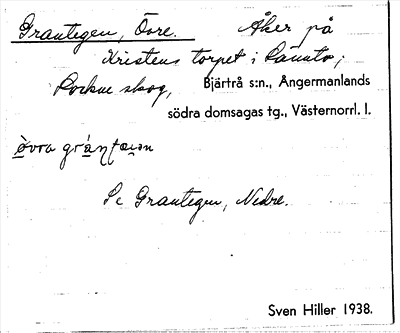 Grautegen, Övre. Åker på
Kristens torpet i
skog, Bjärtrå s:n., Ångermanlands
södra domsagas tg., Västernorrl. l.
Se Grautegen, Nedre.
Sven Hiller 1938.